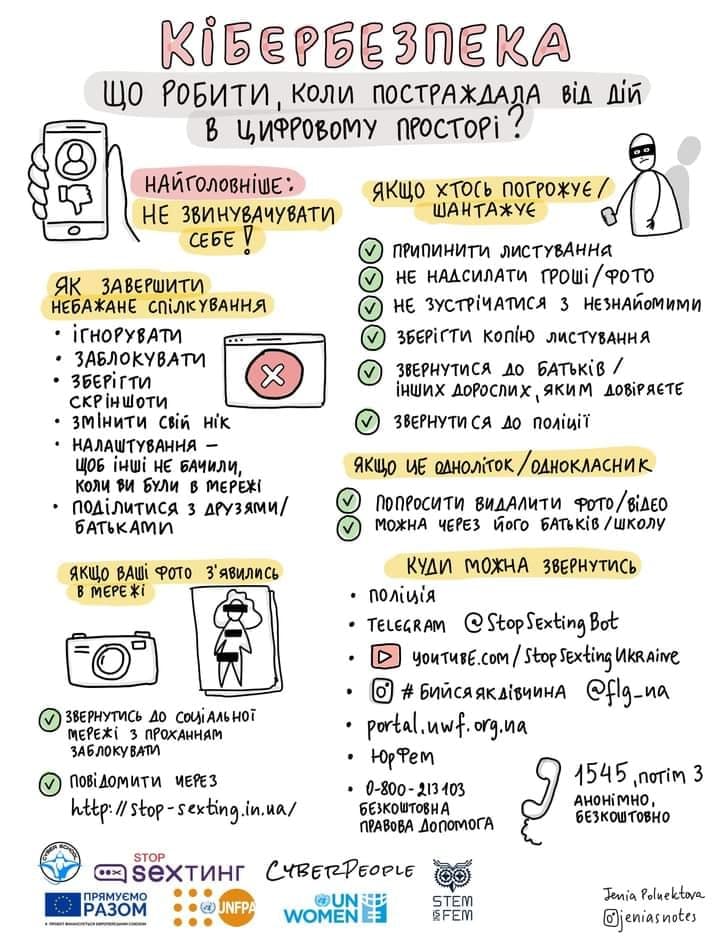 КІБЕРБЕЗПЕКА
ЩО РОБИТИ, КОЛИ ПОСТРАЖДАЛА ВІД ДІЙ
В ЦИФРОВОМУ ПРОСТОРІ?
НАЙГОЛОВНІШЕ:
НЕ ЗВИНУВАЧУВАТИ
СЕБЕ!
ЯК ЗАВЕРШИТИ
НЕБАЖАНЕ СПІЛКУВАННЯ
• ІГНОРУВАТИ
• ЗАБЛОКУВАТИ
• ЗБЕРІГТИ
СКРІНШОТИ
• ЗМІНИТИ СВІЙ НІК
• НАЛАШТУВАННЯ –
ЩОБ ІНШІ НЕ БАЧИЛИ,
КОЛИ ВИ БУЛИ В МЕРЕЖІ
• ПОДІЛИТИСЯ З ДРУЗЯМИ/
БАТЬКАМИ
ЯКЩО ВАШІ ФОТО З'ЯВИЛИСЬ
В МЕРЕЖІ
ЗВЕРНУТИСЬ ДО СОЦІАЛЬНОЇ
МЕРЕЖІ З ПРОХАННЯМ
ЗАБЛОКУВАТИ
ПОВІДОМИТИ ЧЕРЕЗ
http://stop-sexting.in.ua/
ЯКЩО ХТОСЬ ПОГРОЖУЄ/
ШАНТАЖУЄ
ПРИПИНИТИ ЛИСТУВАННЯ
НЕ НАДСИЛАТИ ГРОШІ/ФОТО
НЕ ЗУСТРІЧАТИСЯ З НЕЗНАЙОМИМИ
ЗБЕРІГТИ КОПІЮ ЛИСТУВАННЯ
ЗВЕРНУТИСЯ ДО БАТЬКІВ/
ІНШИХ ДОРОСЛИХ, ЯКИМ ДОВІРЯЄТЕ
ЗВЕРНУТИСЯ ДО ПОЛІЦІЇ
ЯКЩО ЦЕ ОДНОЛІТОК/ОДНОКЛАСНИК
ПОПРОСИТИ ВИДАЛИТИ ФОТО/ВІДЕО
МОЖНА ЧЕРЕЗ ЙОГО БАТЬКІВ/ШКОЛУ
КУДИ МОЖНА ЗВЕРНУТИСЬ
• ПОЛІЦІЯ
• TELEGRAM @StopSextingBot
• YOUTUBE.COM/StopSextingUkraine
• #БИЙСЯЯКДІВЧИНА @flg_ua
• portal.uwf.org.ua
• ЮрФем
• 0-800-213103
БЕЗКОШТОВНА
ПРАВОВА ДОПОМОГА
1545, ПОТІМ 3
АНОНІМНО,
БЕЗКОШТОВНО
CYBER SCHOOL
STOP
SEXТИНГ
CYBERPEOPLE
ПРЯМУЄМО
РАЗОМ
UNFPA
UN
WOMEN
STEM
IS FEM
Jenia Poluektova
@jeniasnotes